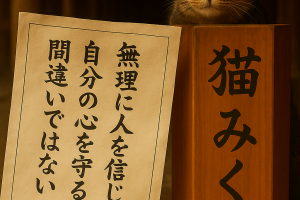 無理に人を信じ
自分の心を守る
間違いではない
猫みく